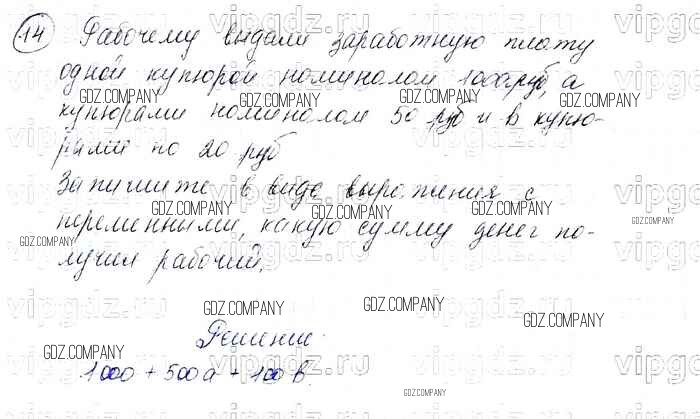 14 Рабочему выдали заработную плату
одной купюрой номиналом 1000 руб, а
купюрами номиналом 50 руб и в купю-
рами по 20 руб
Запишите в виде выражения с
переменными, какую сумму денег по-
лучил рабочий.
Решение:
1000 + 500а + 100в.
vipgdz.ru
GDZ.COMPANY